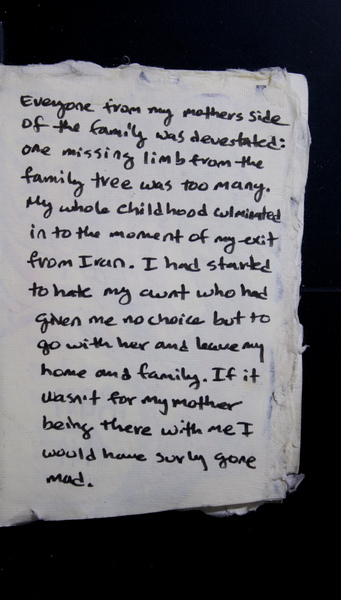 Everyone from my mothers side
of the family was devestated:
one missing limb from the
family tree was too many.
My whole childhood culminated
in to the moment of my exit
from Iran. I had started
to hate my aunt who had
given me no choice but to
go with her and leave my
home and family. If it
wasn't for my mother
being there with me I
would have surly gone
mad.